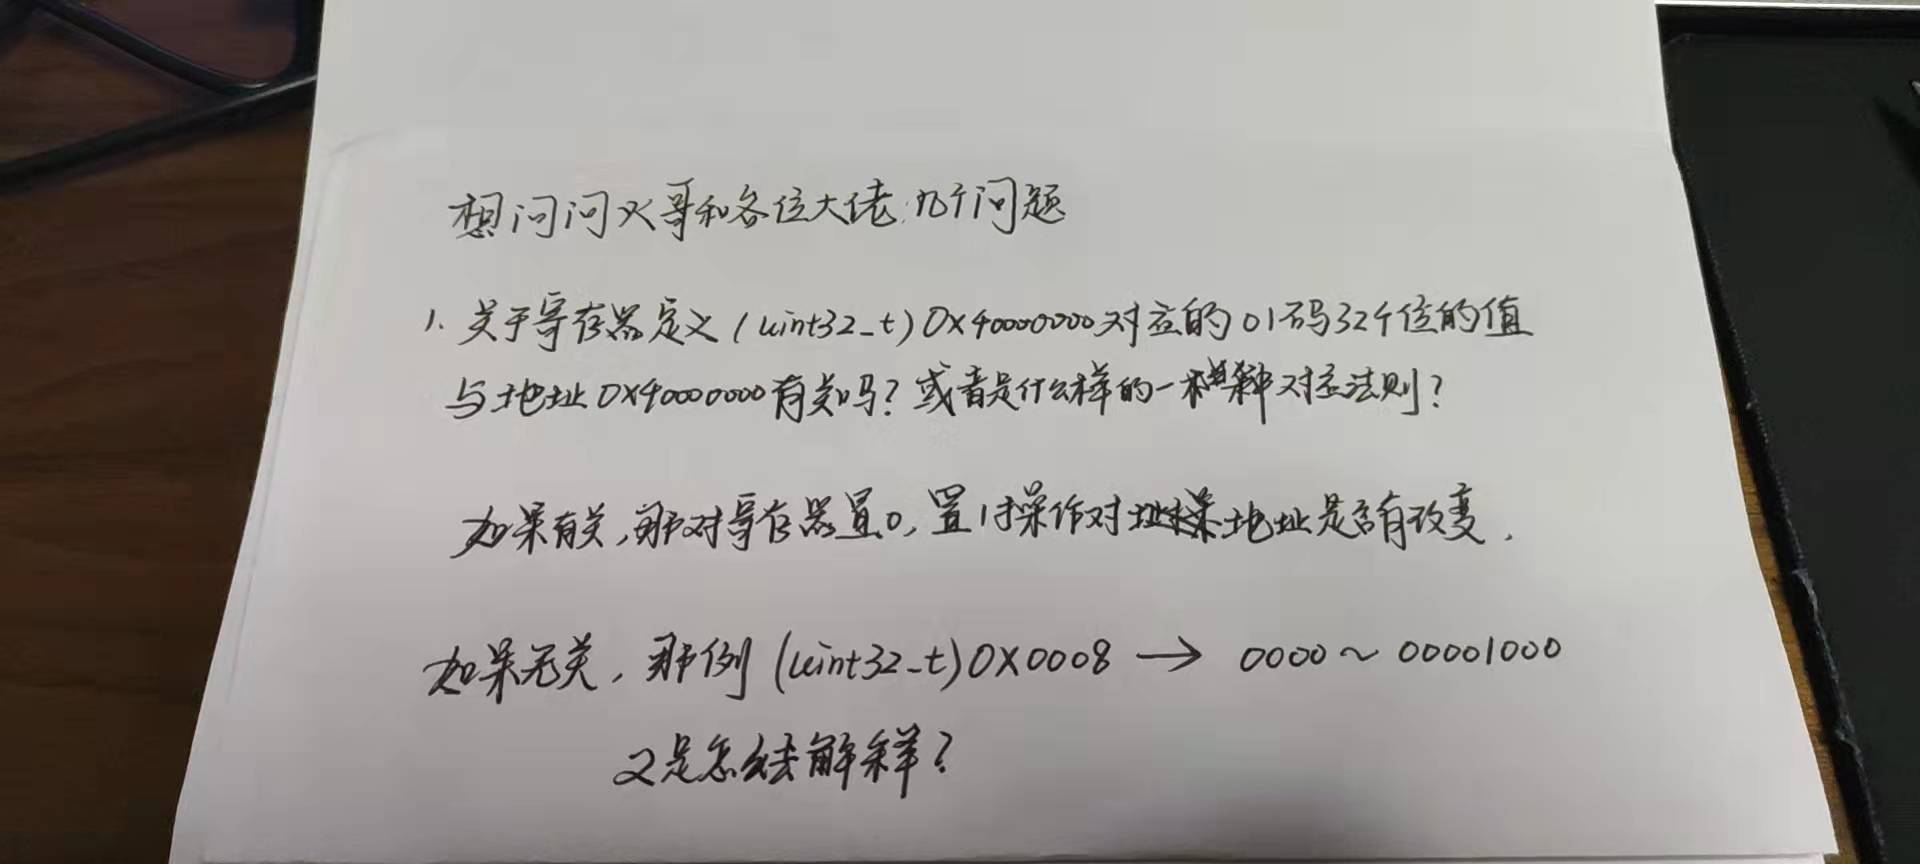 想问问火哥和各位大佬几个问题
1. 关于寄存器定义(uint32_t)0X40000000对应的01码32个位的值
与地址0X40000000有关吗?或者是什么样的一种对应法则?
如果有关,那对寄存器置0,置1操作对地址是否有改变.
如果无关,那例(uint32_t)0X0008→0000~00001000
又是怎么去解释?